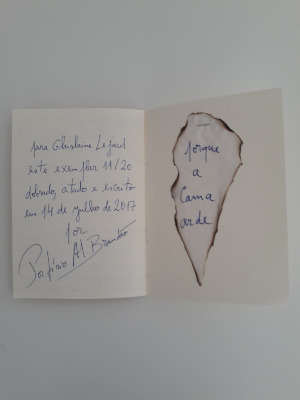 para Ghislaine Lejard
este exemplar 11/20
dobrado, atado e escrito
em 14 de julho de 2017
por
Porfírio Al Brandão
porque
a
Cama
arde